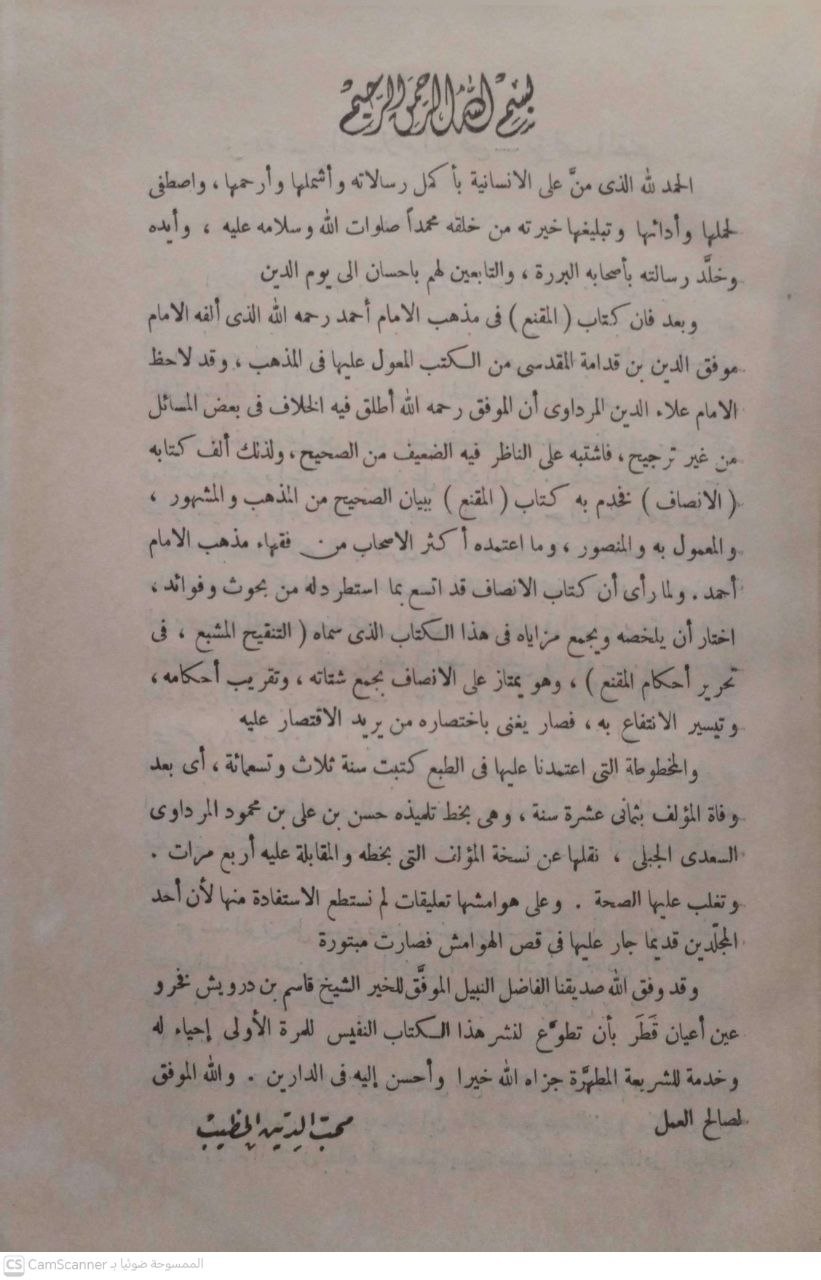 بسم الله الرحمن الرحيم
الحمد لله الذى منَّ على الانسانية بأكمل رسالاته وأشملها وأرحمها ، واصطفى
لحملها وأدائها وتبليغها خيرته من خلقه محمداً صلوات الله وسلامه عليه ، وأيده
وخلَّد رسالته بأصحابه البررة ، والتابعين لهم باحسان الى يوم الدين
وبعد فان كتاب ( المقنع ) فى مذهب الامام أحمد رحمه الله الذى ألفه الامام
موفق الدين بن قدامة المقدسى من الكتب المعول عليها فى المذهب ، وقد لاحظ
الامام علاء الدين المرداوى أن الموفق رحمه الله أطلق فيه الخلاف فى بعض المسائل
من غير ترجيح ، فاشتبه على الناظر فيه الضعيف من الصحيح ، ولذلك ألف كتابه
( الانصاف ) فخدم به كتاب ( المقنع ) ببيان الصحيح من المذهب والمشهور ،
والمعمول به والمنصور ، وما اعتمده أكثر الاصحاب من فقهاء مذهب الامام
أحمد . ولما رأى أن كتاب الانصاف قد اتسع بما استطرد له من بحوث وفوائد ،
اختار أن يلخصه ويجمع مزاياه فى هذا الكتاب الذى سماه ( التنقيح المشبع ، فى
تحرير أحكام المقنع ) ، وهو يمتاز على الانصاف بجمع شتاته ، وتقريب أحكامه ،
وتيسير الانتفاع به ، فصار يغنى باختصاره من يريد الاقتصار عليه
والمخطوطة التى اعتمدنا عليها فى الطبع كتبت سنة ثلاث وتسعمائة ، أى بعد
وفاة المؤلف بثمانى عشرة سنة ، وهى بخط تلميذه حسن بن على بن محمود المرداوى
السعدى الجبلى ، نقلها عن نسخة المؤلف التى بخطه والمقابلة عليه أربع مرات .
وتغلب عليها الصحة . وعلى هوامشها تعليقات لم نستطع الاستفادة منها لأن أحد
المجلّدين قديما جار عليها فى قص الهوامش فصارت مبتورة
وقد وفق الله صديقنا الفاضل النبيل الموفَّق للخير الشيخ قاسم بن درويش فخرو
عين أعيان قَطَر بأن تطوَّع لنشر هذا الكتاب النفيس للمرة الأولى إحياء له
وخدمة للشريعة المطهَّرة جزاه الله خيرا وأحسن إليه فى الدارين . والله الموفق
لصالح العمل
محب الدين الخطيب
CS CamScanner الممسوحة ضوئيا بـ